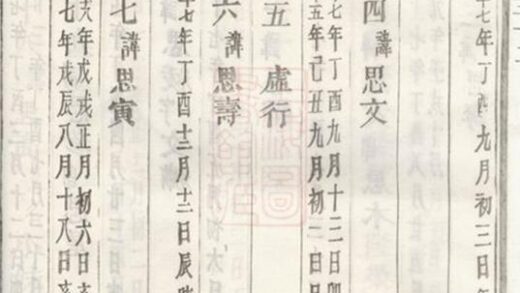 七年丁酉九月初三日
四 諱思文
七年丁酉九月十二日卯
五年己丑九月初
五 虛行
六 諱思壽
七年丁酉十二月十二日辰時
七 諱思寅
年戊戌正月初六日亥
七年戊辰八月十八日亥